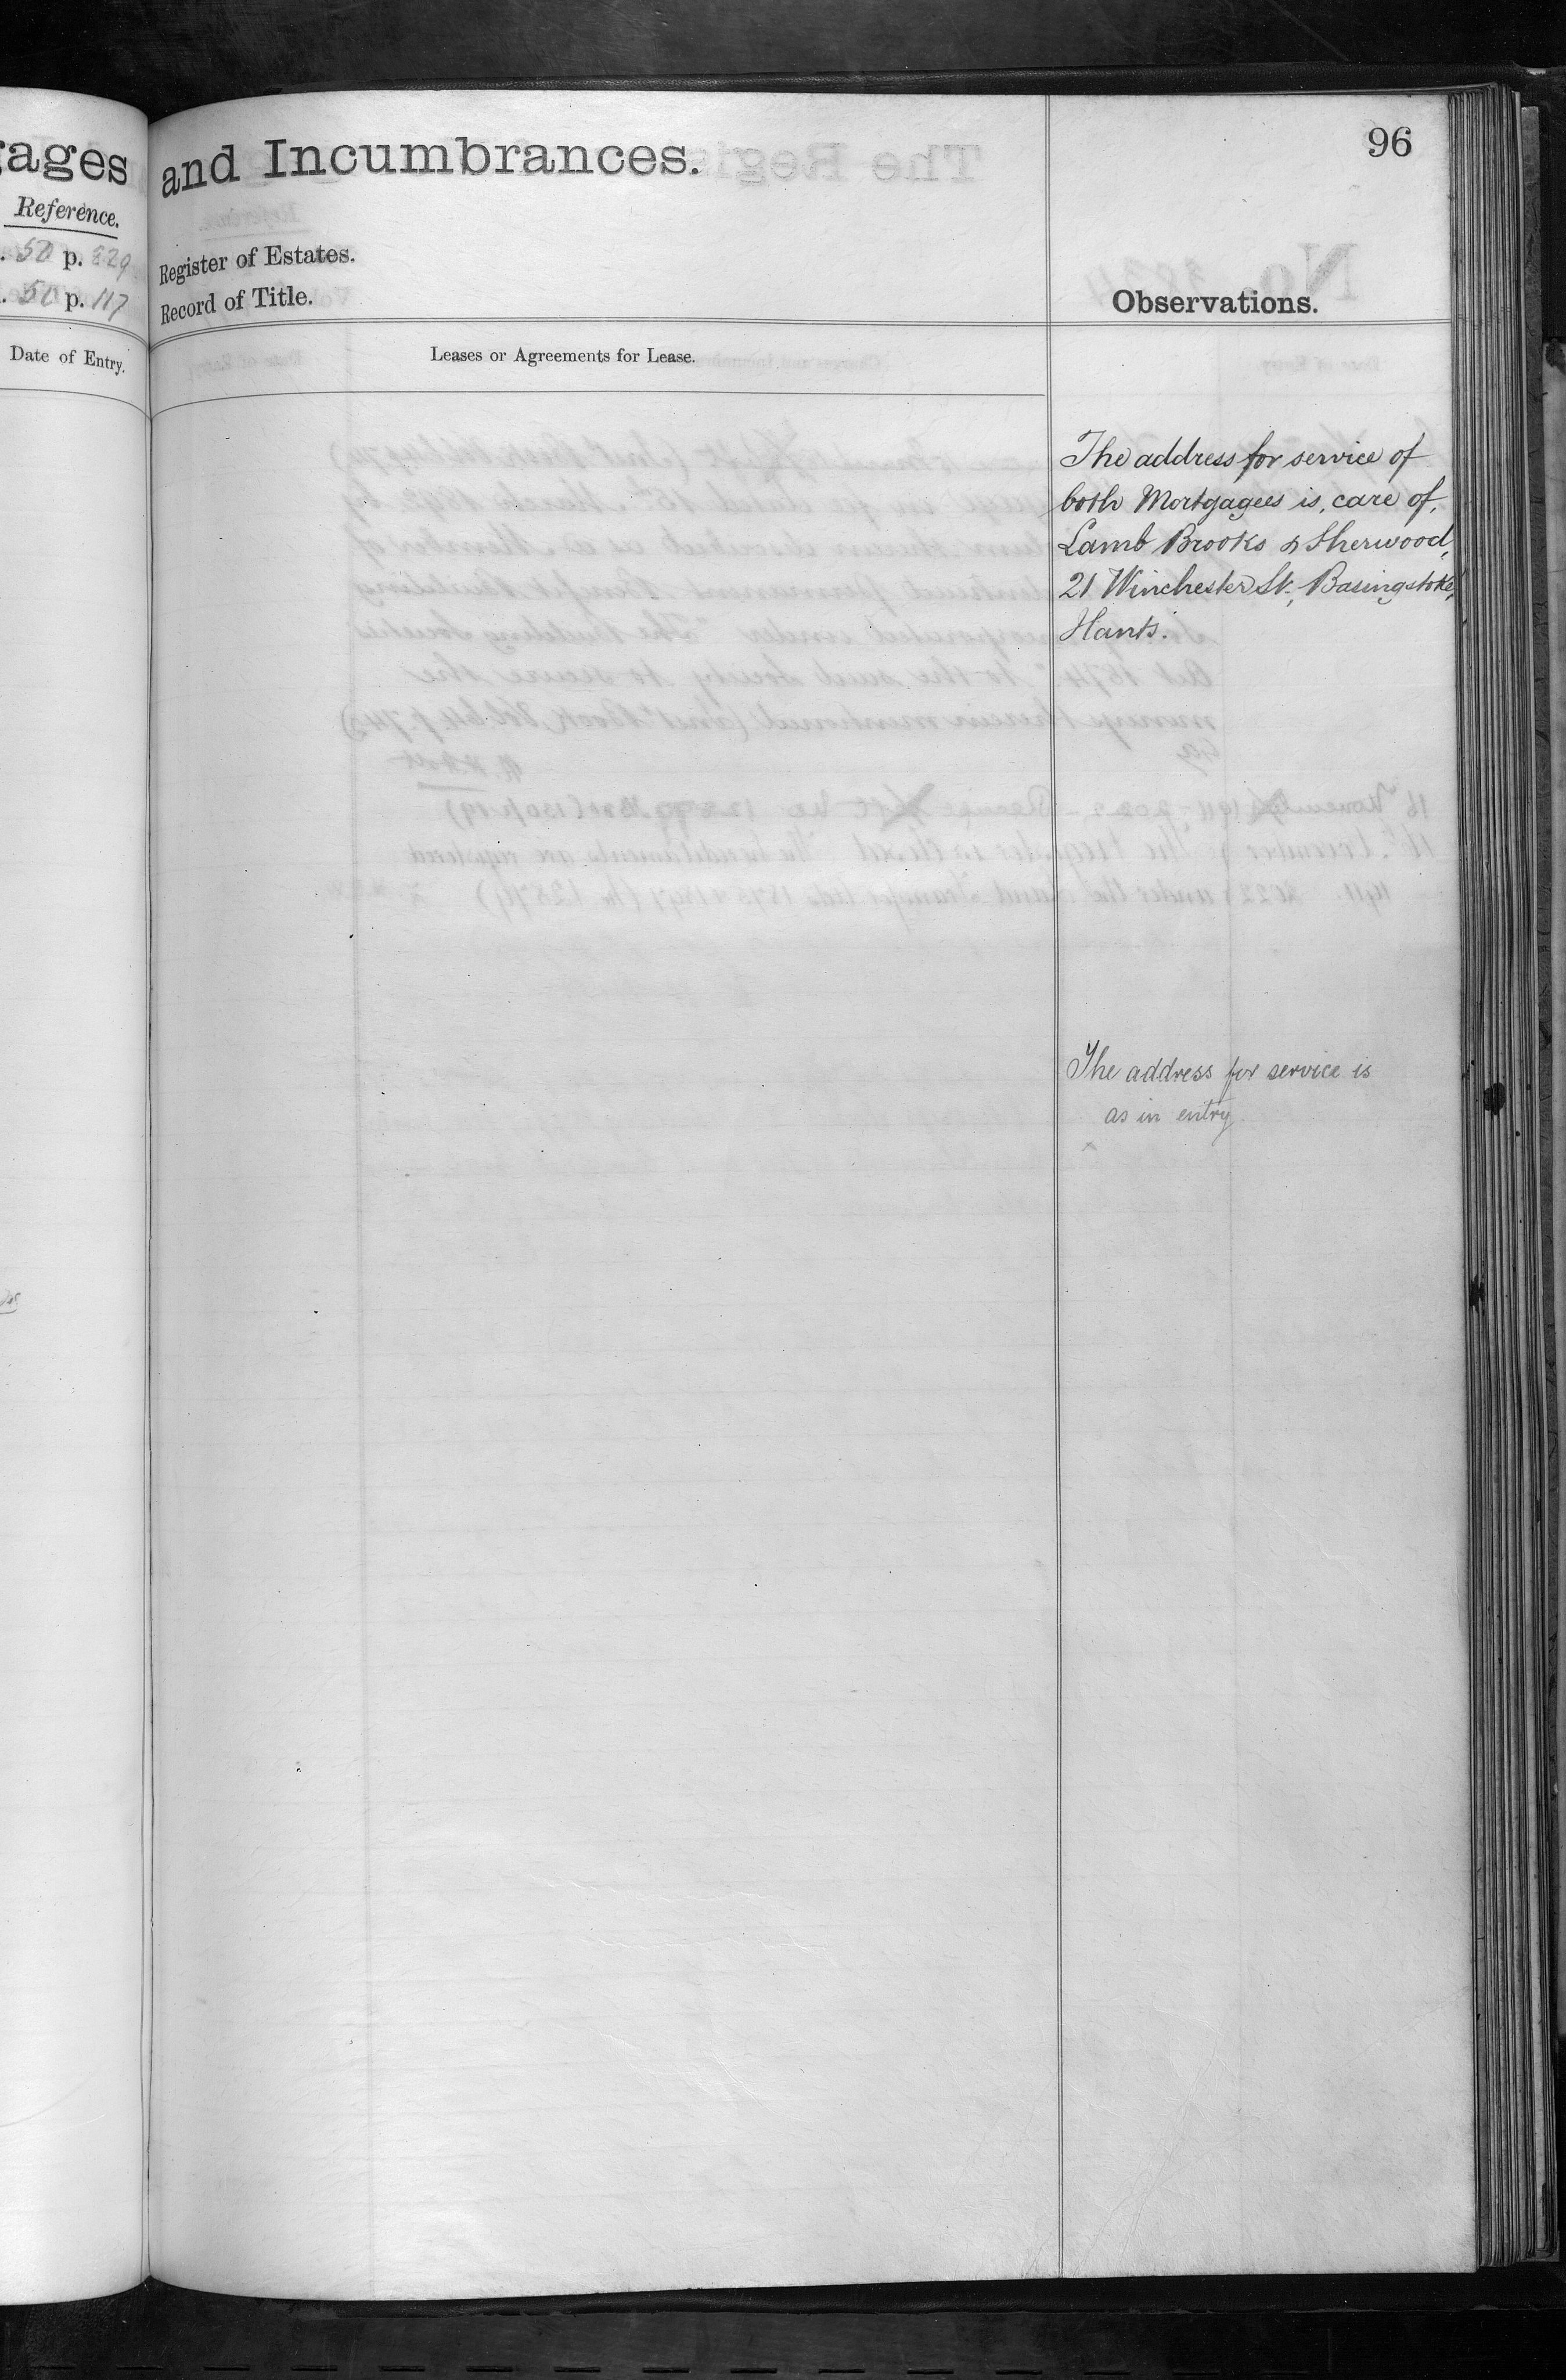 gages
Reference.
. 50 p. 229
. 50 p. 117
Date of Entry.
and Incumbrances.
96
Register of Estates.
Record of Title.
Observations.
Leases or Agreements for Lease.
The address for service of
both Mortgagees is, care of,
Lamb Brooks & Sherwood,
21 Winchester St., Basingstoke,
Hants.
The address for service is
as in entry